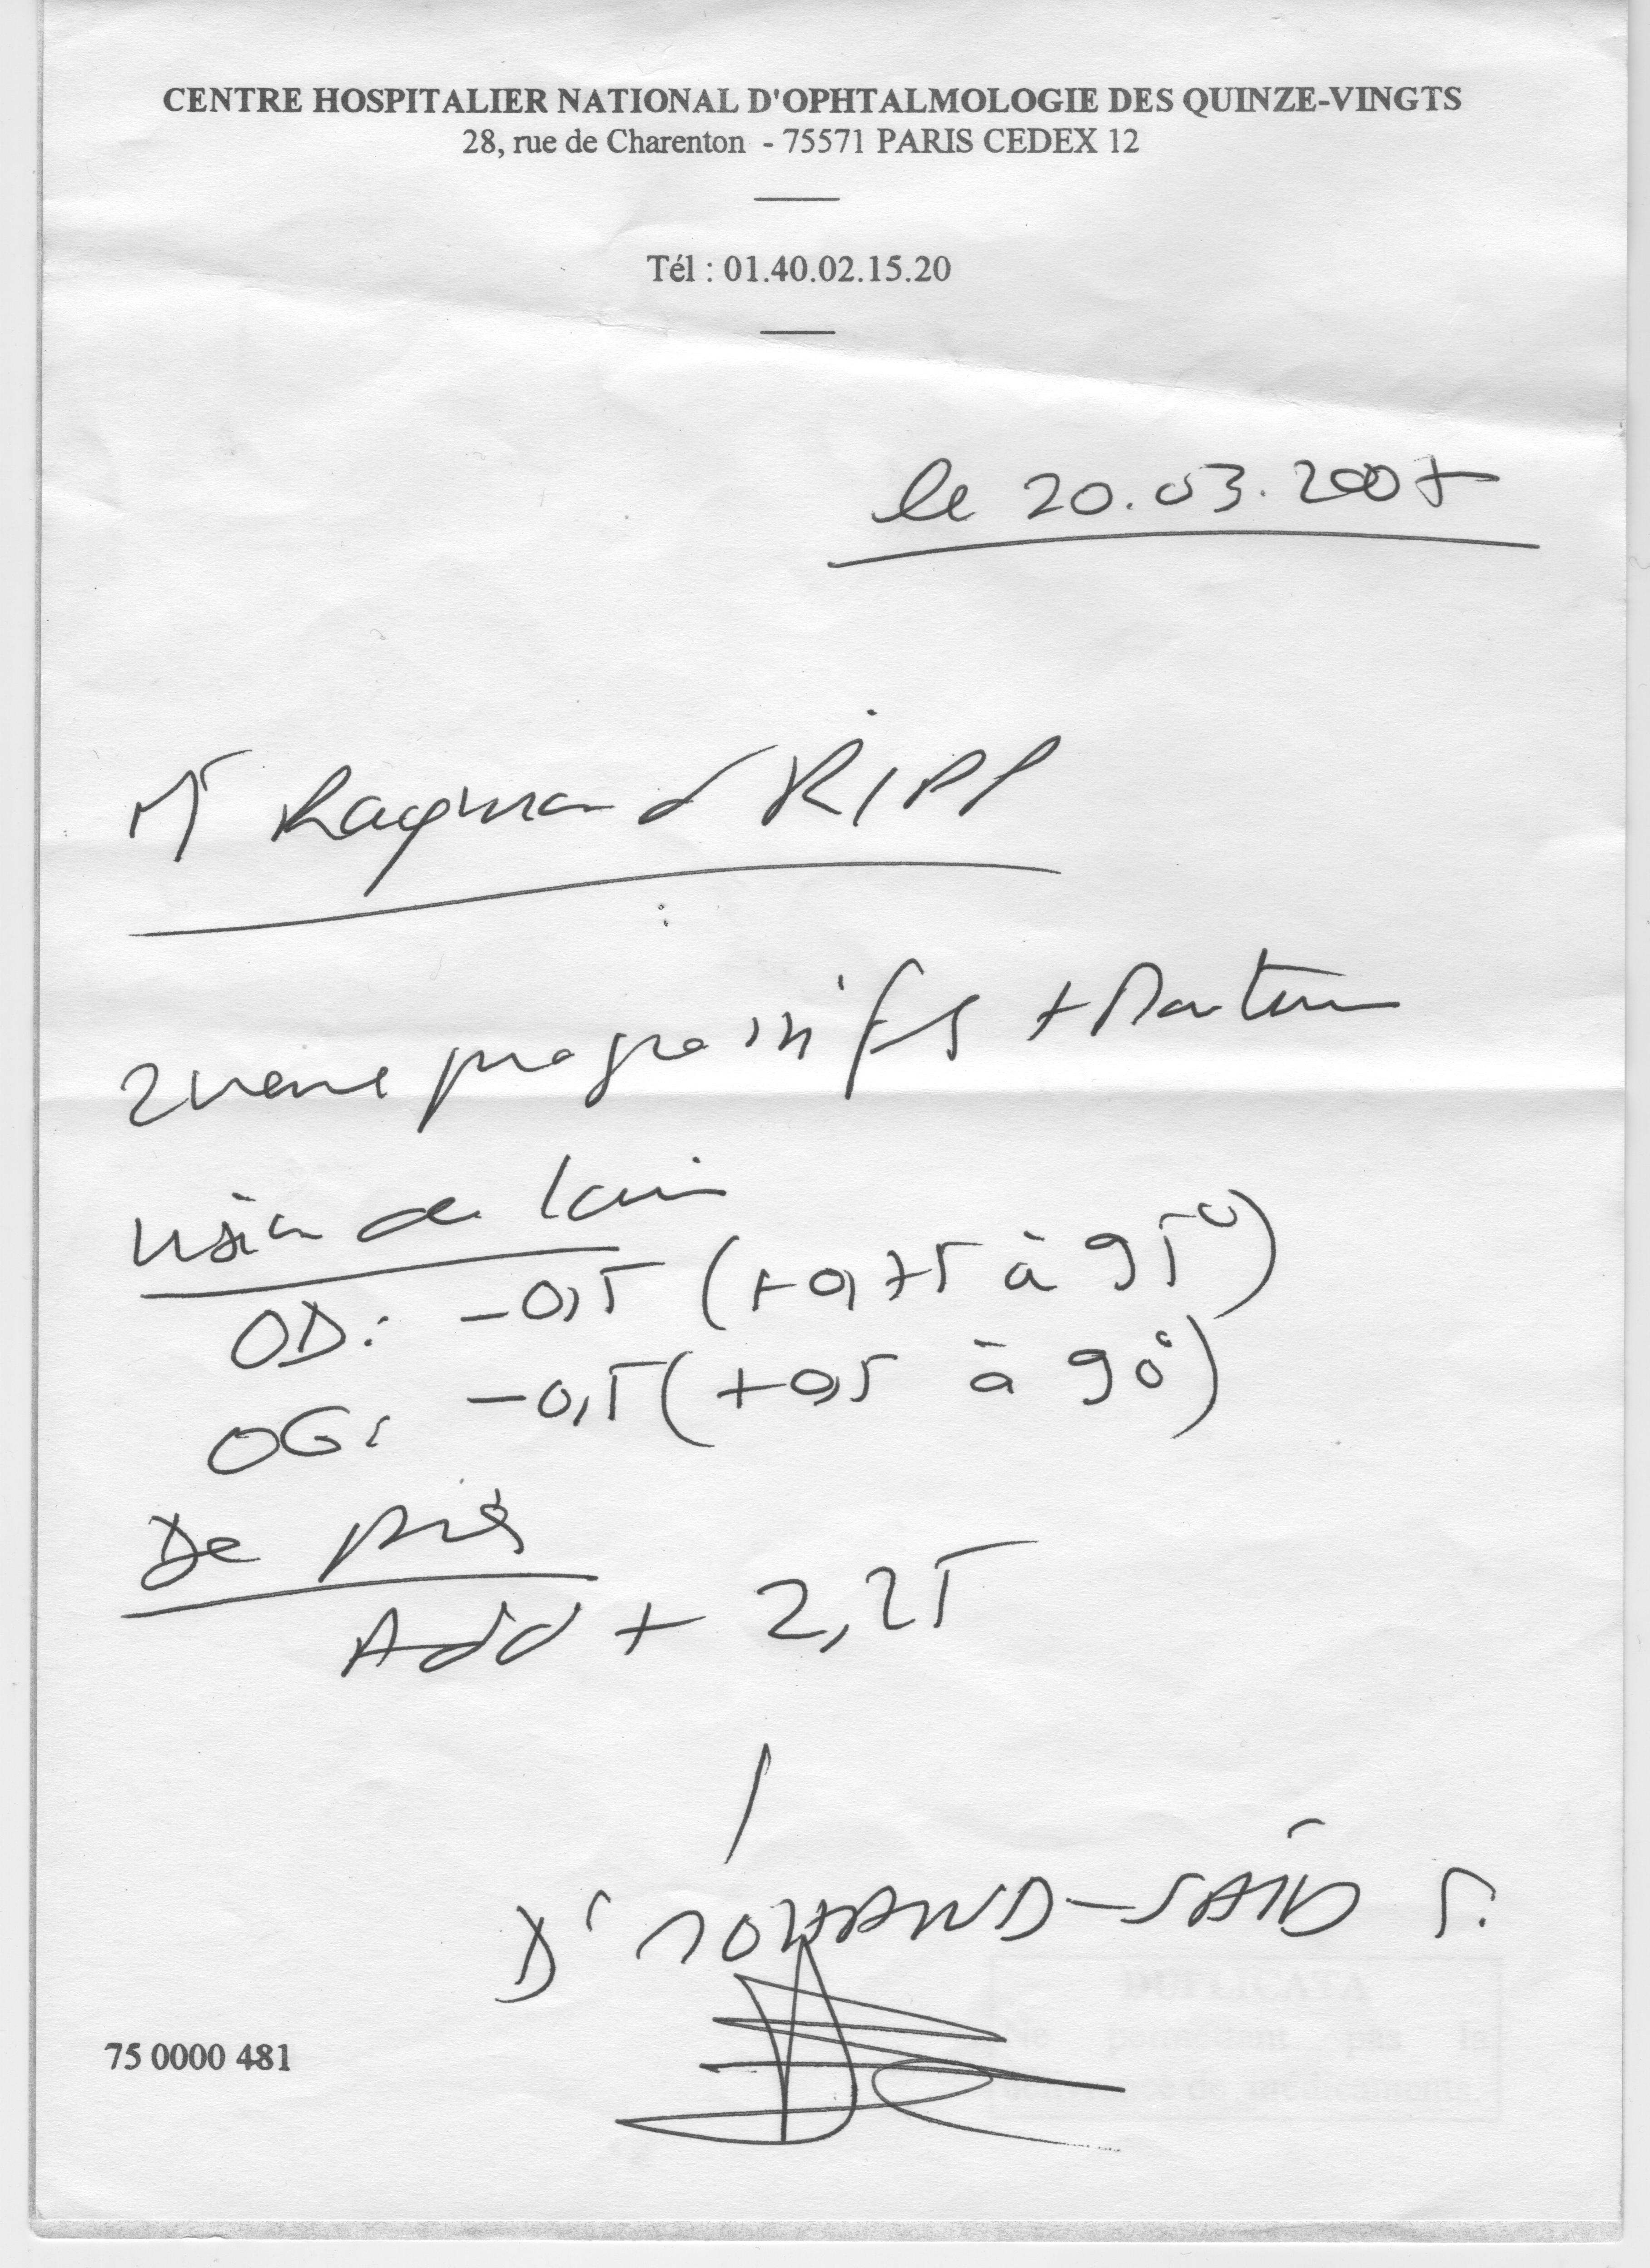 CENTRE HOSPITALIER NATIONAL D'OPHTALMOLOGIE DES QUINZE-VINGTS
28, rue de Charenton - 75571 PARIS CEDEX 12
Tél : 01.40.02.15.20
le 20.03.2007
Mr Raymond RIPP
2 verres progressifs + Monture
Vision de loin
OD: -0,5 (+0,75 à 95°)
OG: -0,5 (+0,5 à 90°)
De près
Add + 2,25
Dr MOHAND-SAÏD S.
DUPLICATA
Ne permettant pas la
délivrance de médicaments
75 0000 481